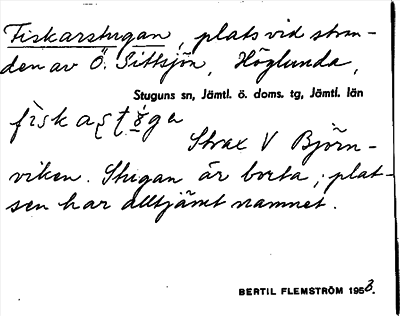 Fiskarstugan, plats vid stran-
den av Ö. Sittsjön, Höglunda,
Stuguns sn, Jämtl. ö. doms. tg, Jämtl. län
Strax V Björn-
viken. Stugan är borta, plat-
sen har alltjämt namnet.
BERTIL FLEMSTRÖM 1953.